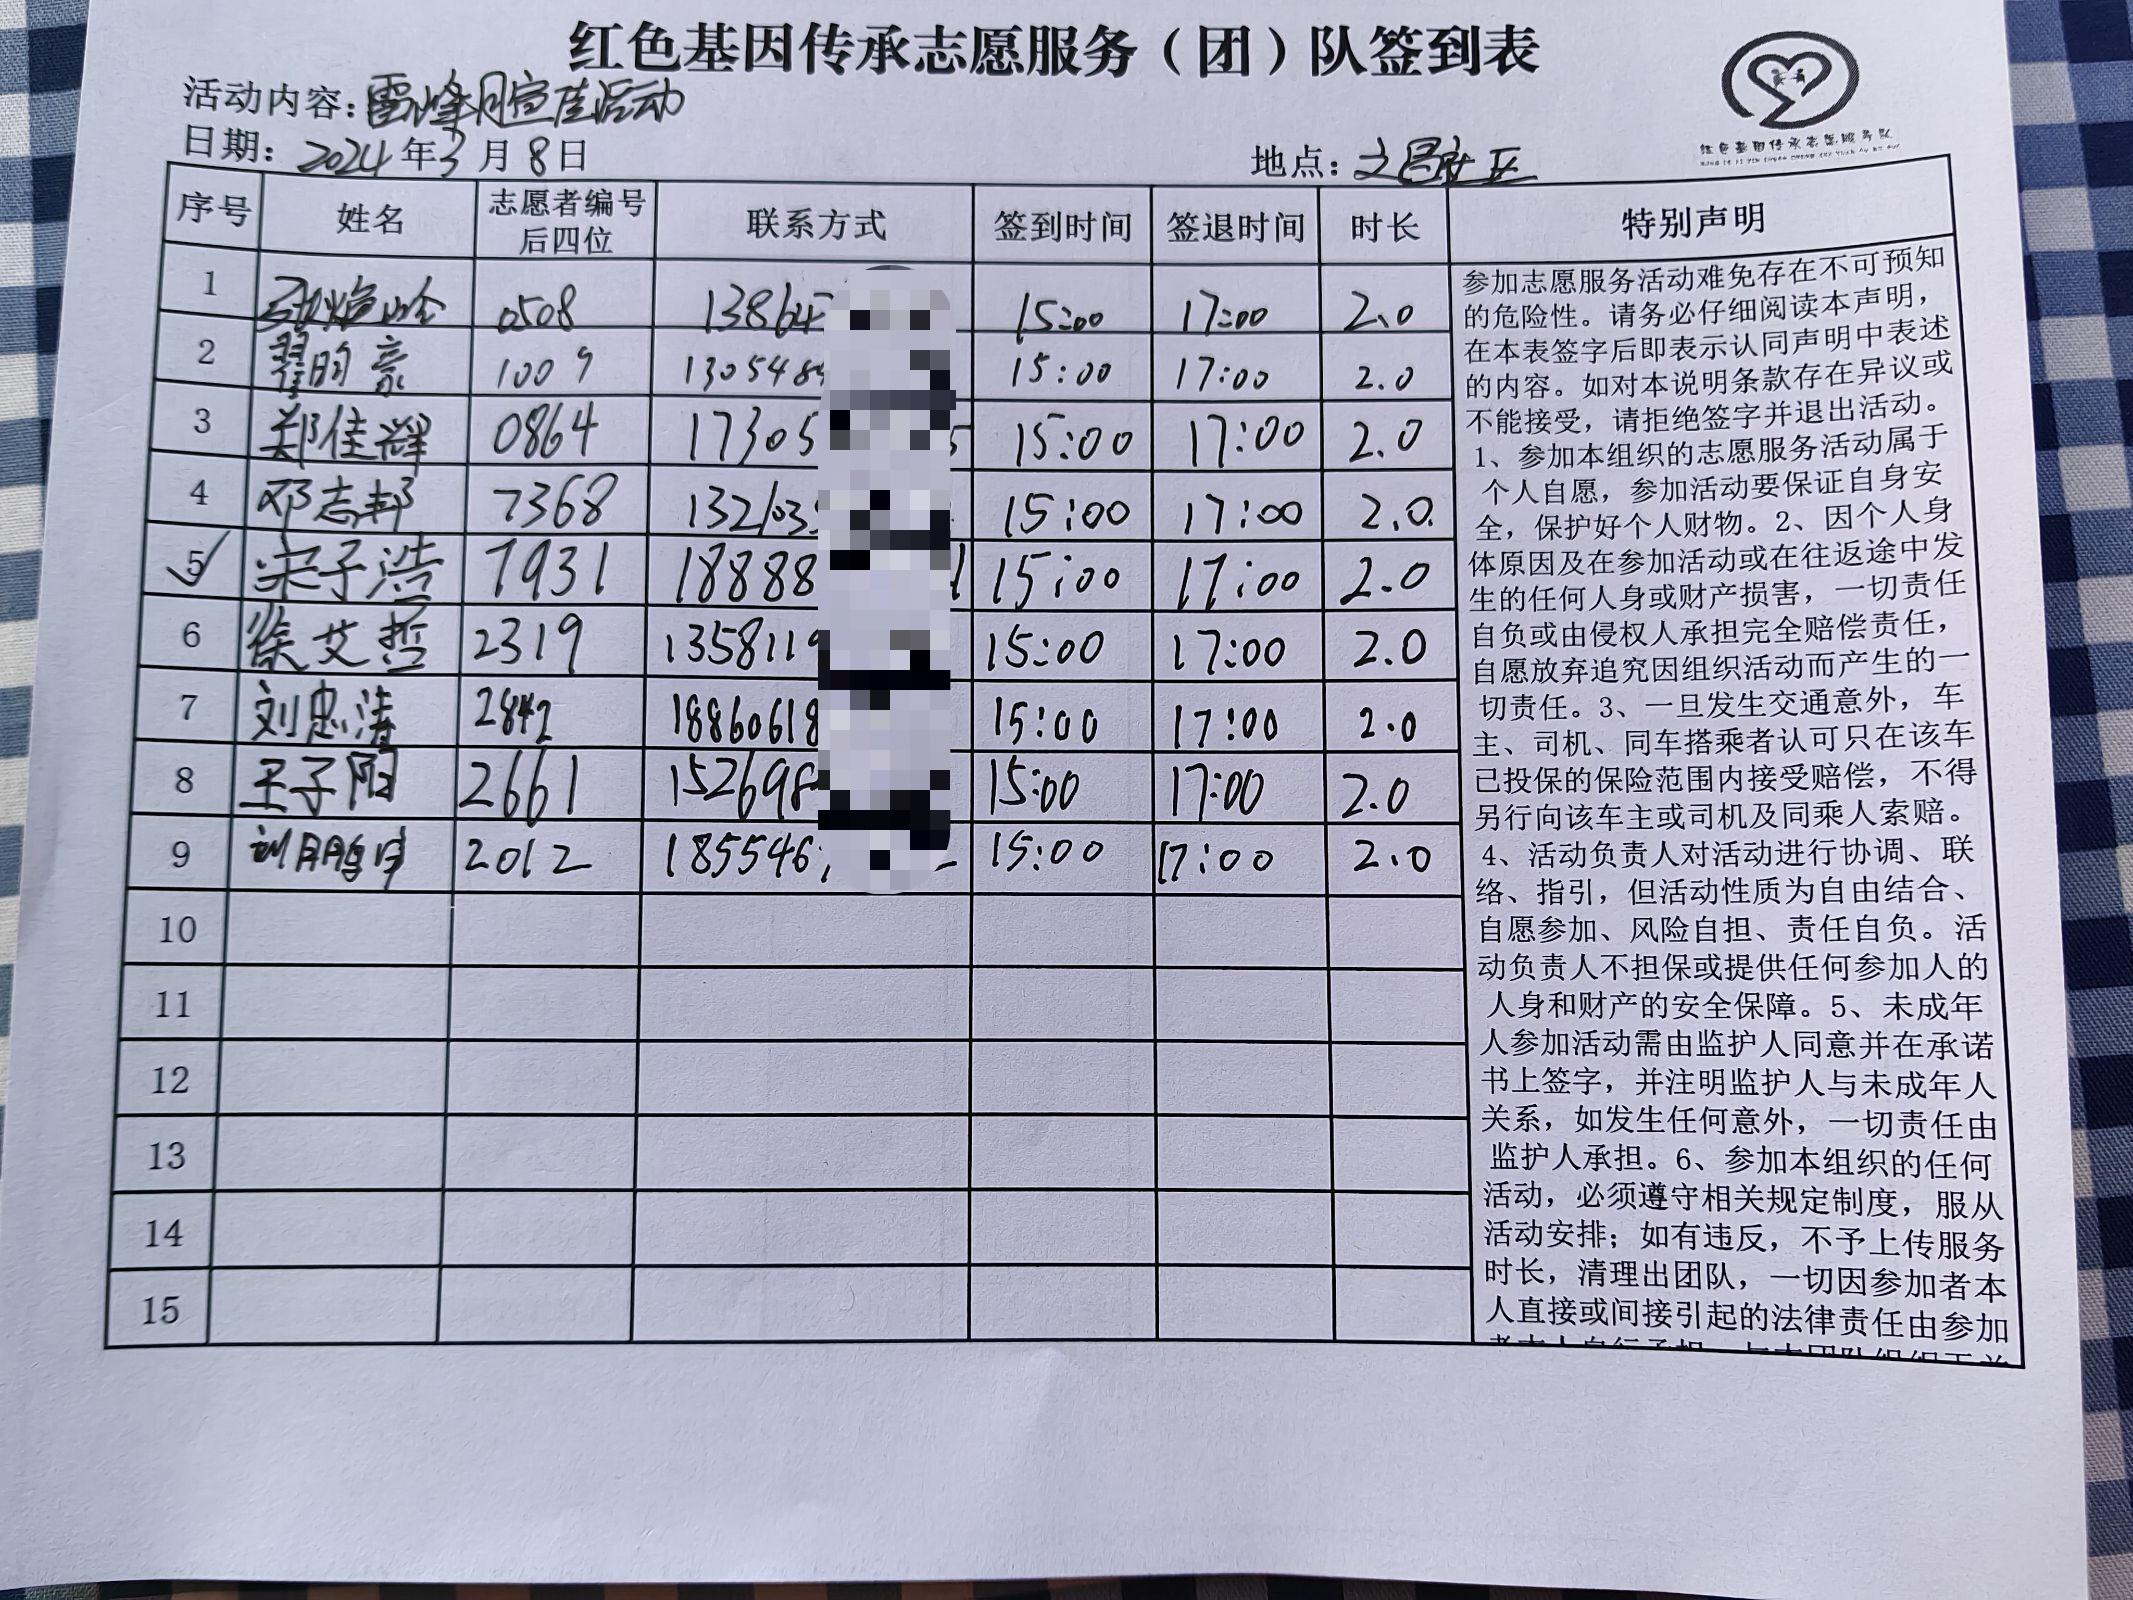 红色基因传承志愿服务（团）队签到表
活动内容：雷锋月宣传活动
日期：2024年3月8日 地点：文昌社区
红色基因传承志愿服务队
序号 姓名 志愿者编号后四位 联系方式 签到时间 签退时间 时长 特别声明
1 0508 13864 15:00 17:00 2.0
2 翟昀豪 1009 1305484 15:00 17:00 2.0
3 郑佳辉 0864 17305 15:00 17:00 2.0
4 邓志邦 7368 132103 15:00 17:00 2.0
5 宋子浩 7931 18888 15:00 17:00 2.0
6 徐艾哲 2319 1358119 15:00 17:00 2.0
7 刘忠涛 2842 18860618 15:00 17:00 2.0
8 王子阳 2661 152698 15:00 17:00 2.0
9 2012 185546 15:00 17:00 2.0
10
11
12
13
14
15
参加志愿服务活动难免存在不可预知
的危险性。请务必仔细阅读本声明，
在本表签字后即表示认同声明中表述
的内容。如对本说明条款存在异议或
不能接受，请拒绝签字并退出活动。
1、参加本组织的志愿服务活动属于
个人自愿，参加活动要保证自身安
全，保护好个人财物。2、因个人身
体原因及在参加活动或在往返途中发
生的任何人身或财产损害，一切责任
自负或由侵权人承担完全赔偿责任，
自愿放弃追究因组织活动而产生的一
切责任。3、一旦发生交通意外，车
主、司机、同车搭乘者认可只在该车
已投保的保险范围内接受赔偿，不得
另行向该车主或司机及同乘人索赔。
4、活动负责人对活动进行协调、联
络、指引，但活动性质为自由结合、
自愿参加、风险自担、责任自负。活
动负责人不担保或提供任何参加人的
人身和财产的安全保障。5、未成年
人参加活动需由监护人同意并在承诺
书上签字，并注明监护人与未成年人
关系，如发生任何意外，一切责任由
监护人承担。6、参加本组织的任何
活动，必须遵守相关规定制度，服从
活动安排；如有违反，不予上传服务
时长，清理出团队，一切因参加者本
人直接或间接引起的法律责任由参加